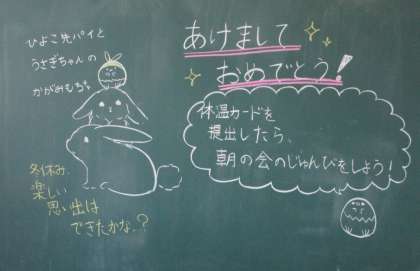 ひよこ先パイと
うさぎちゃんの
かがみもち。
あけまして
おめでとう!
体温カードを
提出したら、
朝の会のじゅんびをしよう!
冬休み、
楽しい
思い出は
できたかな。?